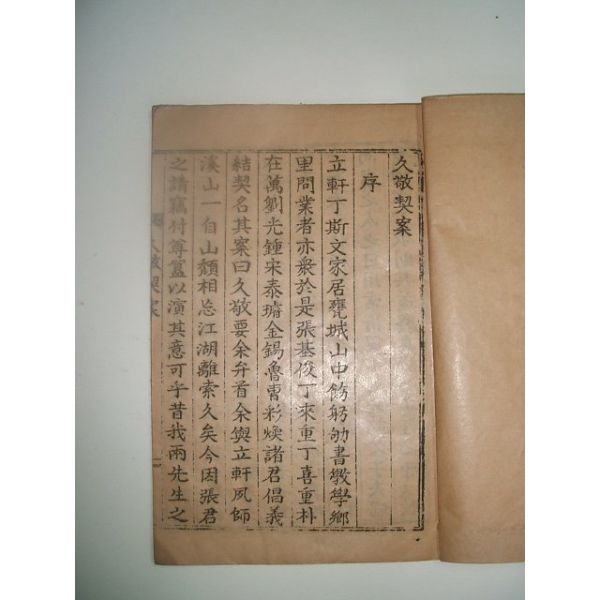 久敬契案
序
立軒丁斯文家居甕城山中飭躬劬書斆學鄉
里問業者亦衆於是張基俊丁來重丁喜重朴
在萬劉光鍾宋泰璿金錫魯曺彩煥諸君倡義
結契名其案曰久敬要余弁首余與立軒夙師
溪山一自山頹相忘江湖離索久矣今因張君
之請竊付尊簋以演其意可乎昔我兩先生之
久敬契案